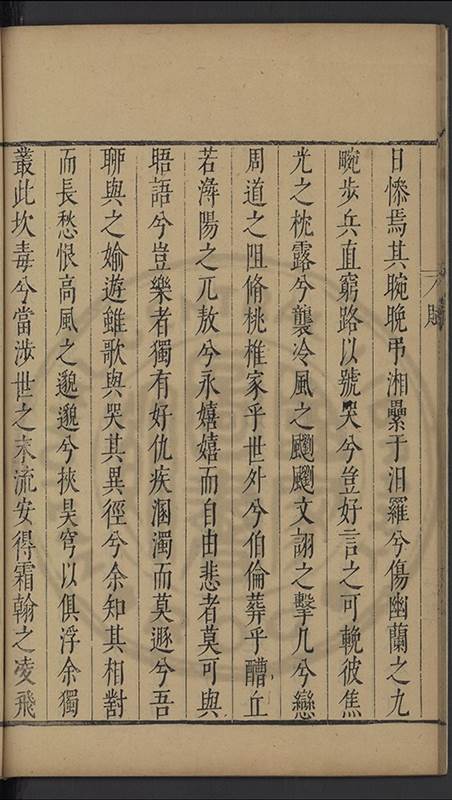 日慘焉其晼晚弔湘纍于汨羅兮傷幽蘭之九
畹步兵直窮路以號哭兮豈好言之可輓彼焦
光之枕露兮襲冷風之颸颸文詡之擊几兮戀
周道之阻脩桃椎家乎世外兮伯倫葬乎醩丘
若漨陽之兀敖兮永嬉嬉而自由悲者莫可與
晤語兮豈樂者獨有好仇疾溷濁而莫遯兮吾
聊與之婾遊雖歌與哭其異徑兮余知其相對
而長愁恨高風之邈邈兮挾昊穹以俱浮余獨
叢此坎毒兮當涉世之末流安得霜翰之凌飛